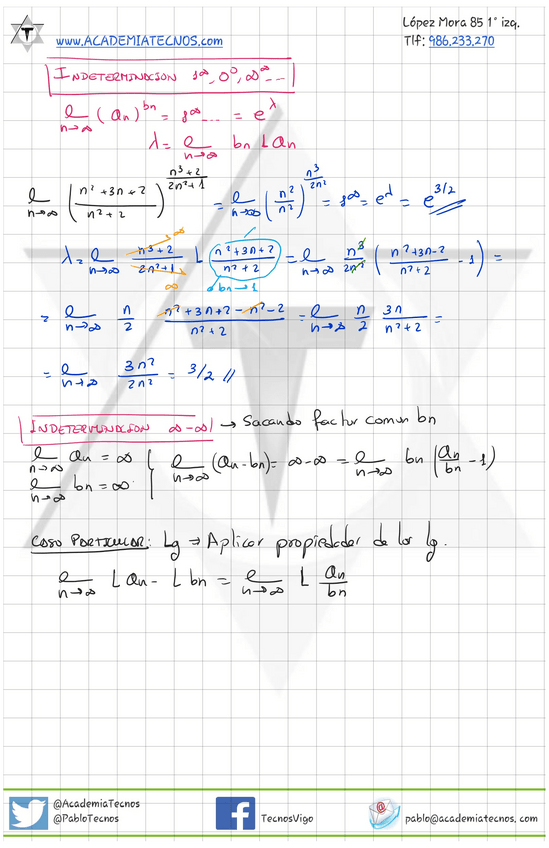 López Mora 85 1° izq.
www.ACADEMIATECNOS.com Tlf: 986.233.270
INDETERMINACION 1^∞, 0^0, ∞^∞ ...
l n→∞ (an)^bn = 1^∞ ... = e^λ
λ = l n→∞ bn L an
l n→∞ ((n²+3n+2)/(n²+2))^((n³+2)/(2n²+1)) = l n→∞ (n²/n²)^(n³/2n²) = 1^∞ = e^λ = e^(3/2)
λ = l n→∞ (n³+2)/(2n²+1) L (n²+3n+2)/(n²+2) = l n→∞ n³/2n² ((n²+3n-2)/(n²+2) - 1) =
∞ ∞ bn→1
= l n→∞ n/2 (n²+3n+2-n²-2)/(n²+2) = l n→∞ n/2 3n/(n²+2) =
= l n→∞ 3n²/2n² = 3/2 //
INDETERMINACION ∞-∞ → Sacando factor comun bn
l n→∞ an = ∞ l n→∞ (an-bn) = ∞-∞ = l n→∞ bn (an/bn - 1)
l n→∞ bn = ∞
CASO PARTICULAR: Lg → Aplicar propiedades de los lg.
l n→∞ L an - L bn = l n→∞ L an/bn
@AcademiaTecnos
@PabloTecnos
TecnosVigo
pablo@academiatecnos.com